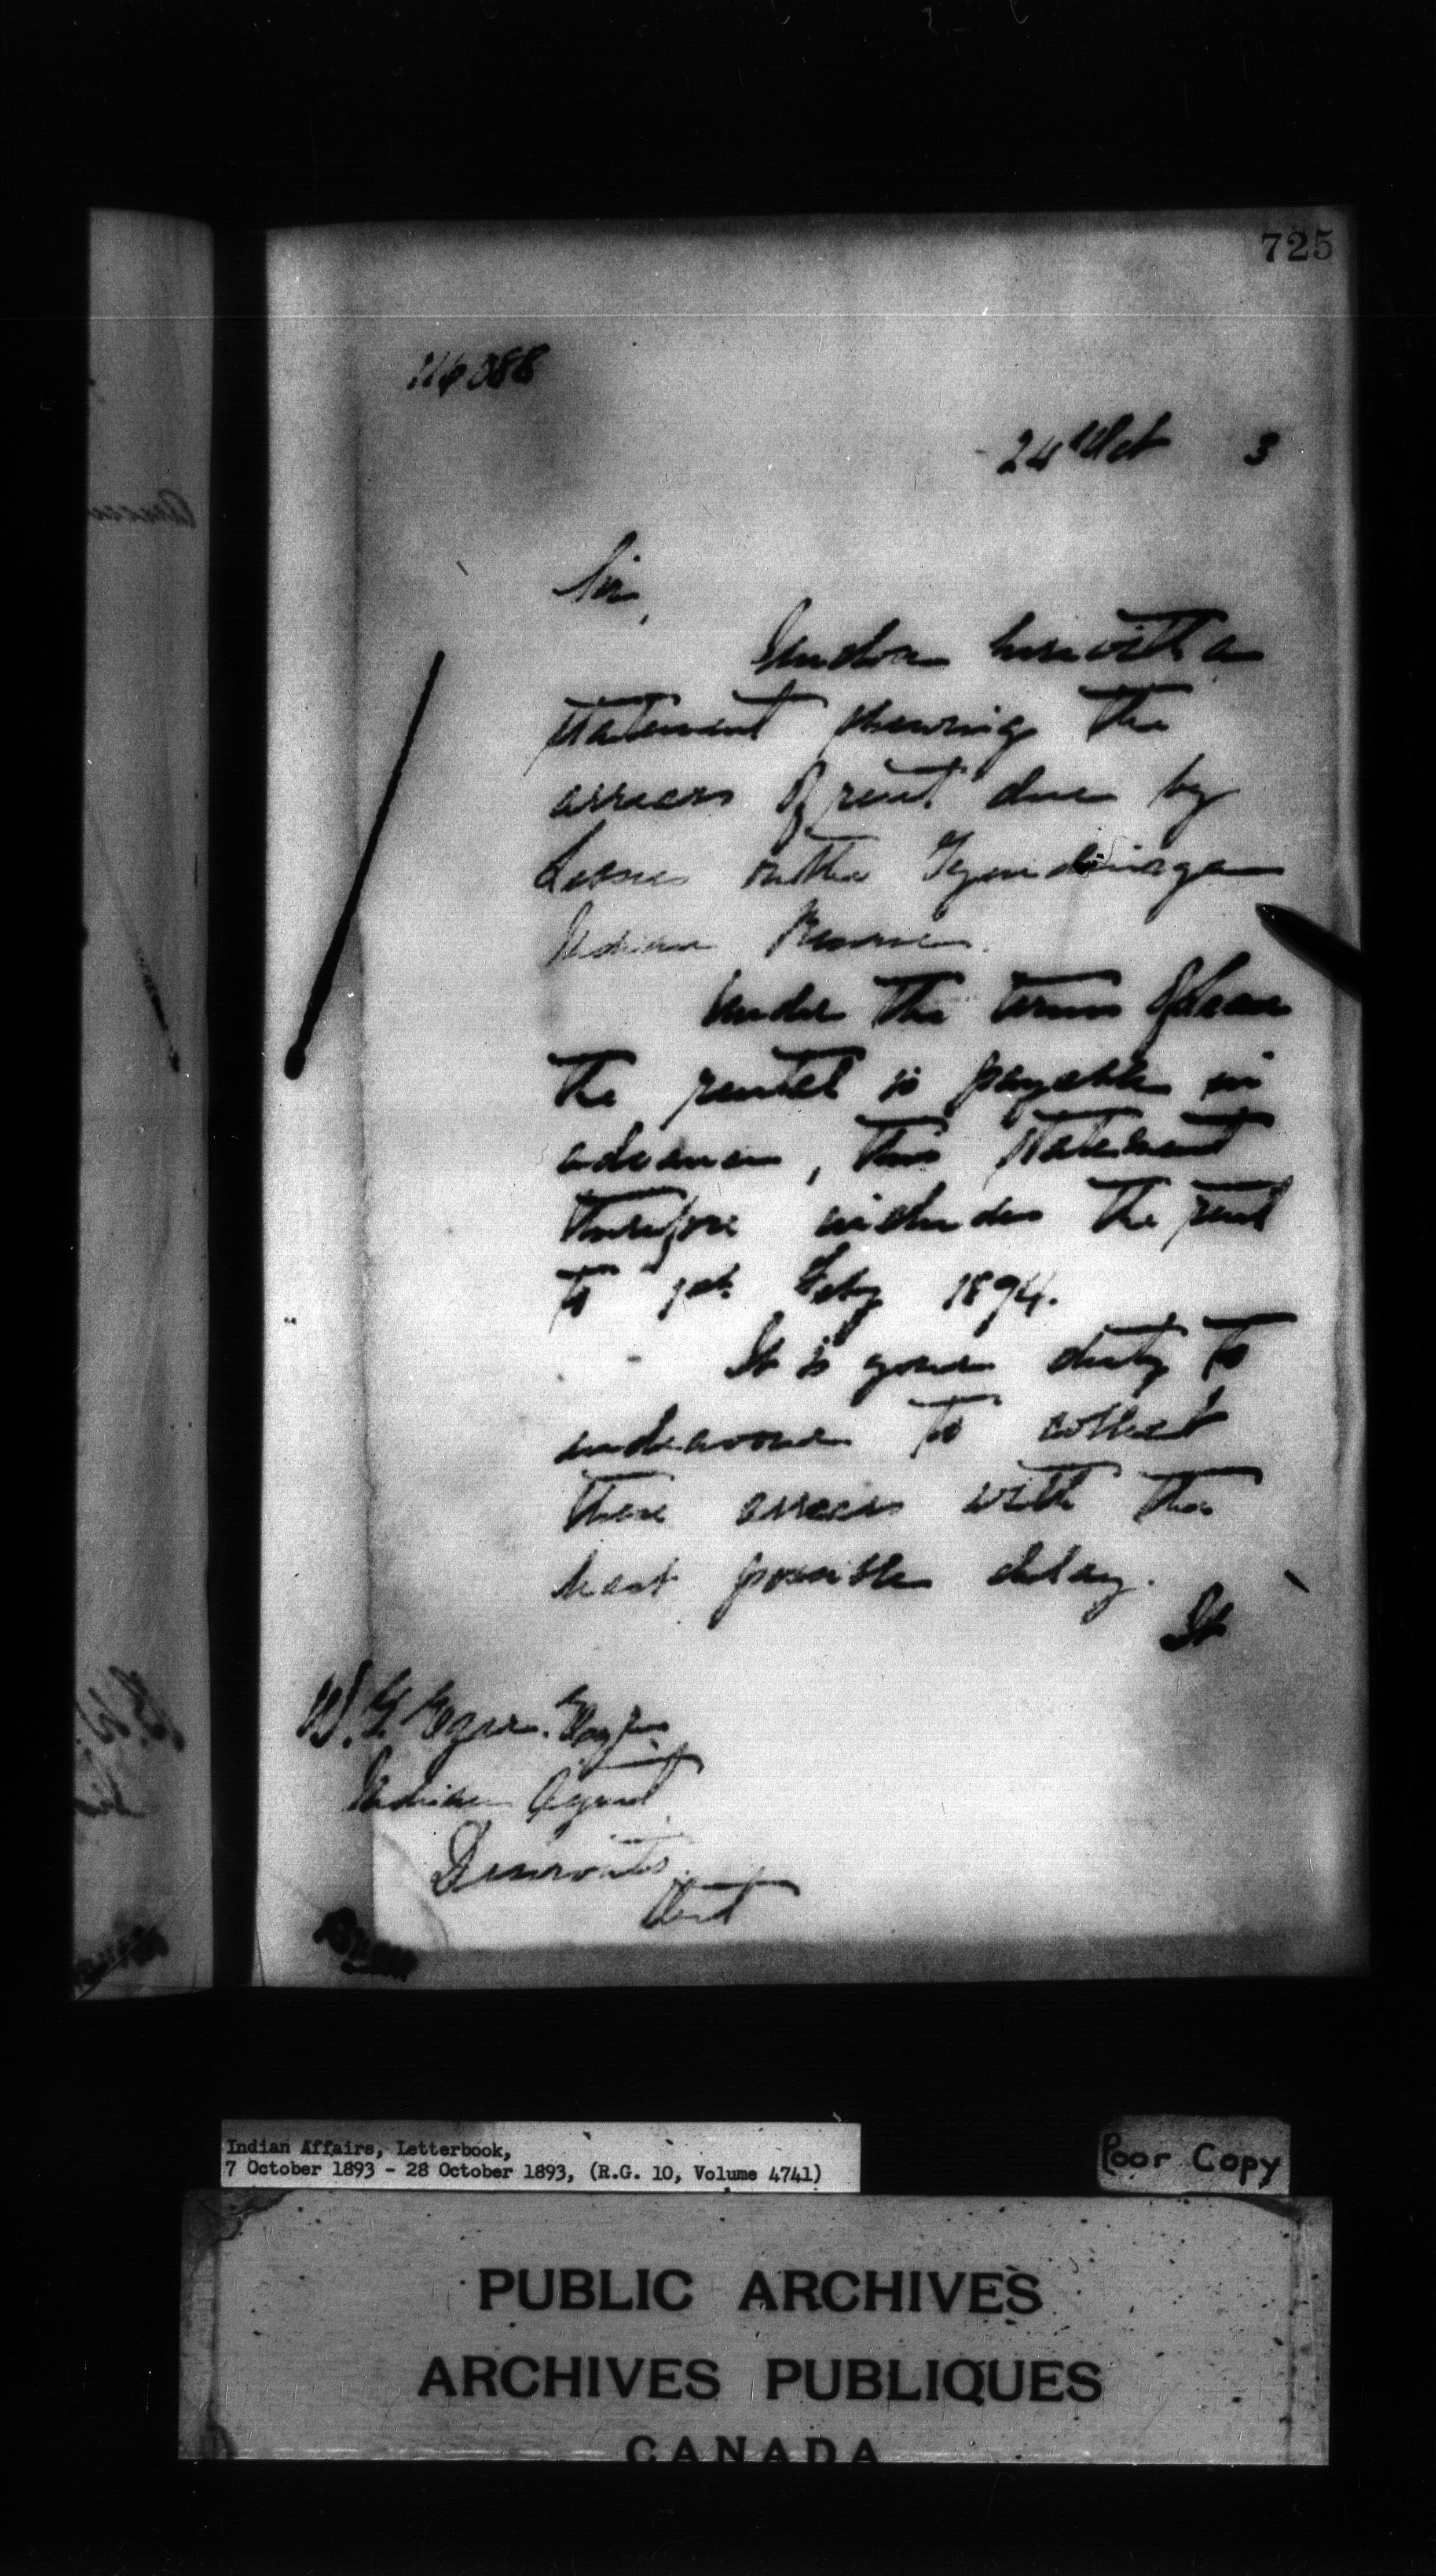 725
116088
24th Oct 3
Sir,
Enclose herewith a
statement shewing the
arrears of rent due by
Lessees on the Tyendinaga
Indian Reserve.
Under the terms of lease
the rental is payable in
advance, this statement
therefore includes the rent
to 1st Feby 1894.
It is your duty to
endeavour to collect
these arrears with the
least possible delay.
It
W. G. Egar. Esqre.
Indian Agent
Deseronto.
Ont
Indian Affairs, Letterbook,
7 October 1893 - 28 October 1893, (R.G. 10, Volume 4741)
Poor Copy
PUBLIC ARCHIVES
ARCHIVES PUBLIQUES
CANADA